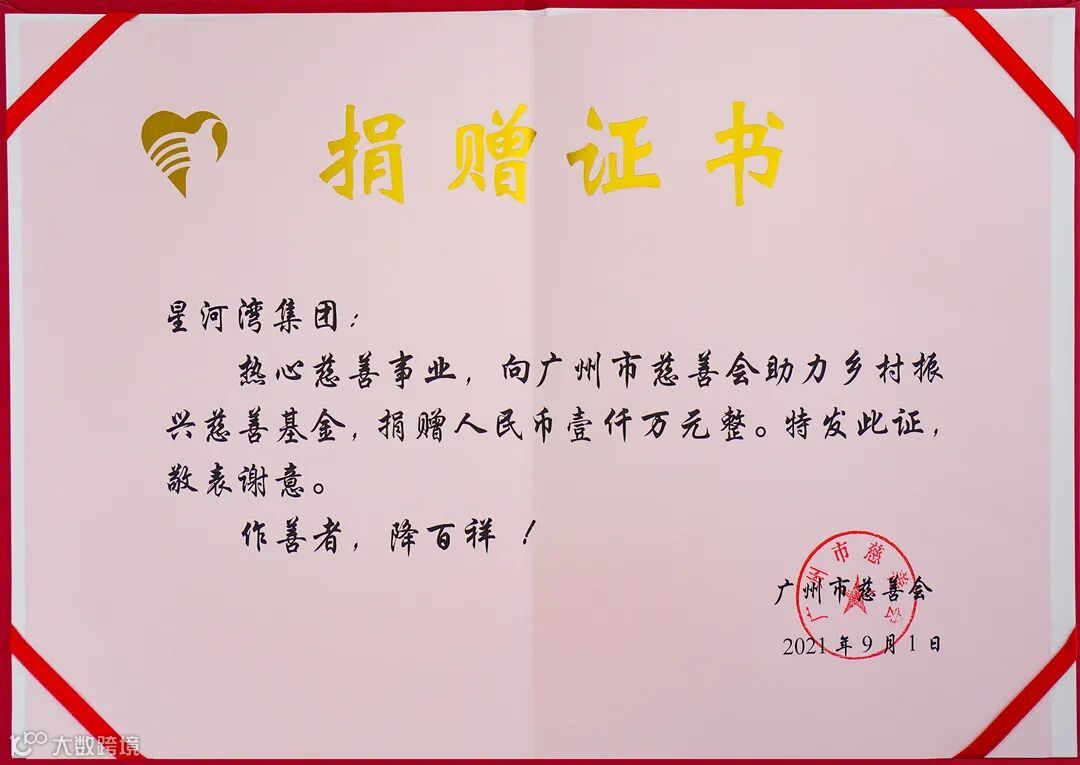 捐赠证书
星河湾集团：
热心慈善事业，向广州市慈善会助力乡村振
兴慈善基金，捐赠人民币壹仟万元整。特发此证，
敬表谢意。
作善者，降百祥！
广州市慈善会
广州市慈善会
2021年9月1日
大数跨境